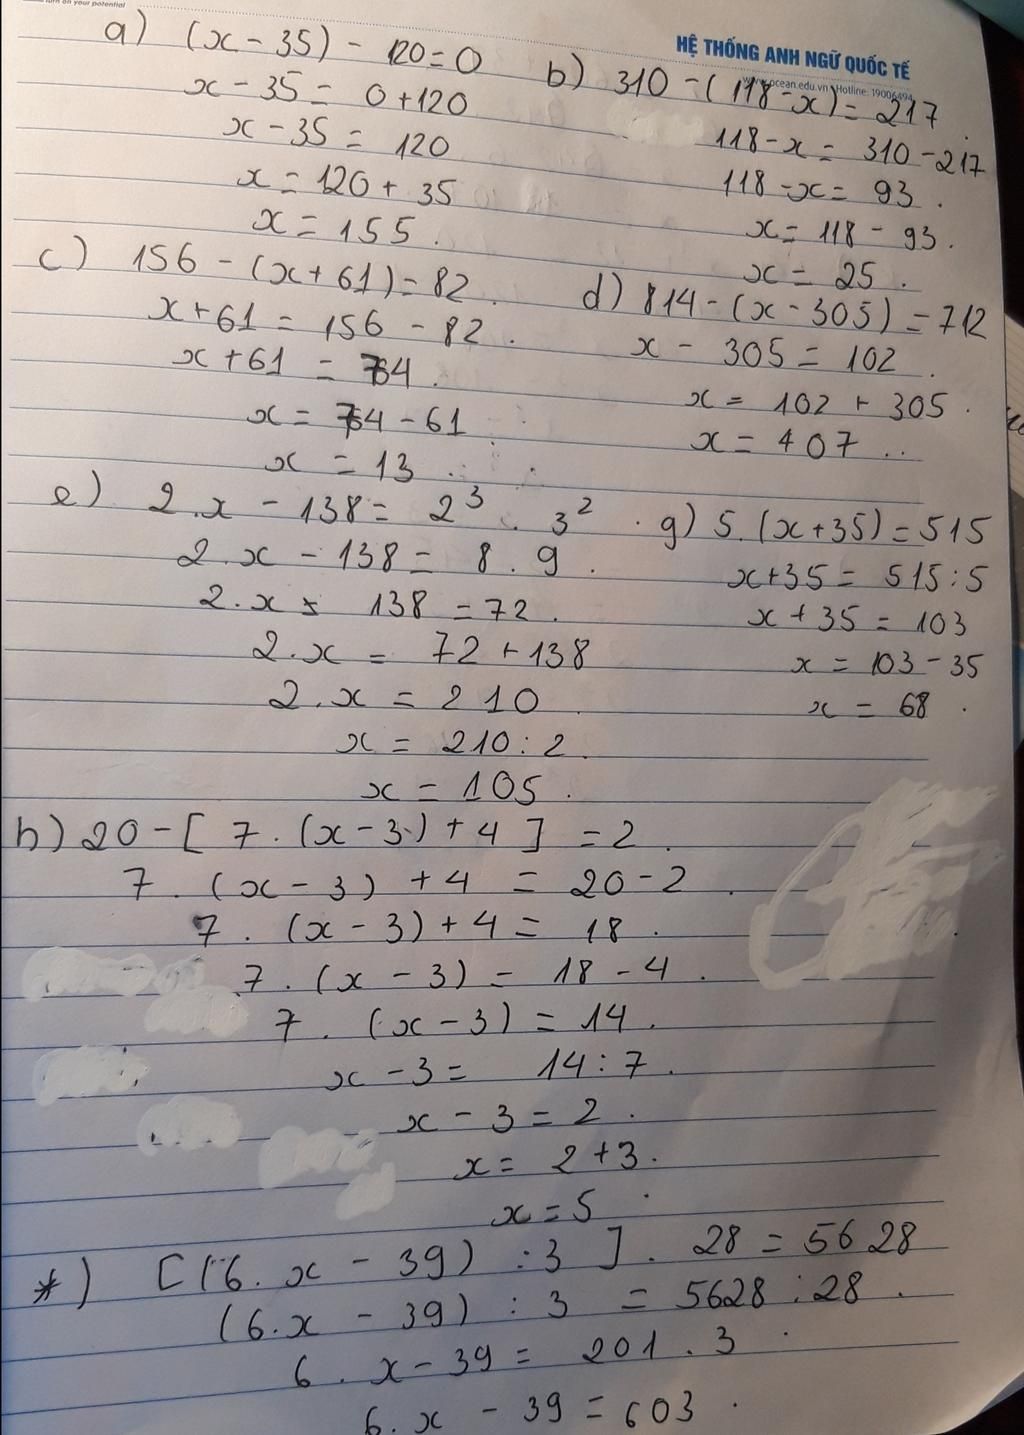 turn on your potential
HỆ THỐNG ANH NGỮ QUỐC TẾ
www.ocean.edu.vn Hotline: 19006494
a) (x - 35) - 120 = 0
x - 35 = 0 + 120
x - 35 = 120
x = 120 + 35
x = 155.
b) 310 - (118 - x) = 217
118 - x = 310 - 217
118 - x = 93.
x = 118 - 93.
x = 25.
c) 156 - (x + 61) = 82.
x + 61 = 156 - 82.
x + 61 = 74.
x = 74 - 61
x = 13
d) 814 - (x - 305) = 712
x - 305 = 102.
x = 102 + 305.
x = 407
e) 2.x - 138 = 2³ . 3².
2.x - 138 = 8 . 9.
2.x - 138 = 72.
2.x = 72 + 138
2.x = 210
x = 210 : 2.
x = 105.
g) 5.(x + 35) = 515
x + 35 = 515 : 5
x + 35 = 103
x = 103 - 35
x = 68.
h) 20 - [7 . (x - 3) + 4] = 2.
7 . (x - 3) + 4 = 20 - 2.
7 . (x - 3) + 4 = 18.
7 . (x - 3) = 18 - 4.
7 . (x - 3) = 14.
x - 3 = 14 : 7.
x - 3 = 2.
x = 2 + 3.
x = 5
*) [(6.x - 39) : 3] . 28 = 5628
(6.x - 39) : 3 = 5628 : 28.
6 . x - 39 = 201 . 3
6.x - 39 = 603.